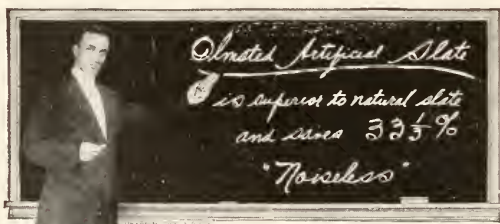 Olmsted Artificial Slate
is superior to natural slate
and saves 33 1/3 %
"Noiseless"